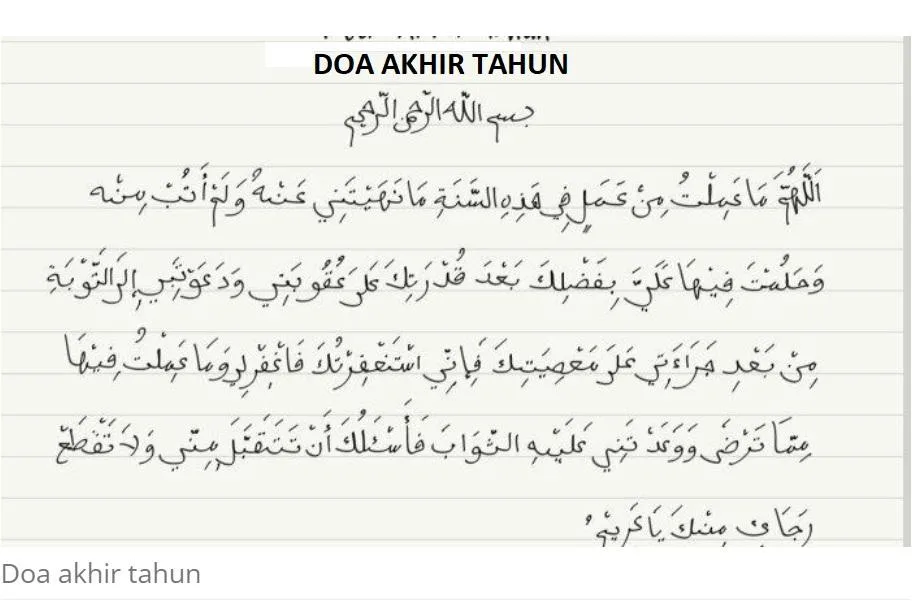 DOA AKHIR TAHUN
بسم الله الرحمن الرحيم
اَللّٰهُمَّ مَا عَمِلْتُ مِنْ عَمَلٍ فِي هَذِهِ السَّنَةِ مَا نَهَيْتَنِي عَنْهُ وَلَمْ أَتُبْ مِنْه
وَحَلُمْتَ فِيْهَا عَلَيَّ بِفَضْلِكَ بَعْدَ قُدْرَتِكَ عَلَى عُقُوبَتِي وَدَعَوْتَنِي إِلَى التَّوْبَةِ
مِنْ بَعْدِ جَرَاءَتِي عَلَى مَعْصِيَتِكَ فَإِنِّي اسْتَغْفَرْتُكَ فَاغْفِرْلِي وَمَا عَمِلْتُ فِيْهَا
مِمَّا تَرْضَى وَوَعَدْتَنِي عَلَيْهِ الثَّوَابَ فَأَسْئَلُكَ أَنْ تَتَقَبَّلَ مِنِّي وَلَا تَقْطَعْ
رَجَائِ مِنْكَ يَا كَرِيْمُ
Doa akhir tahun